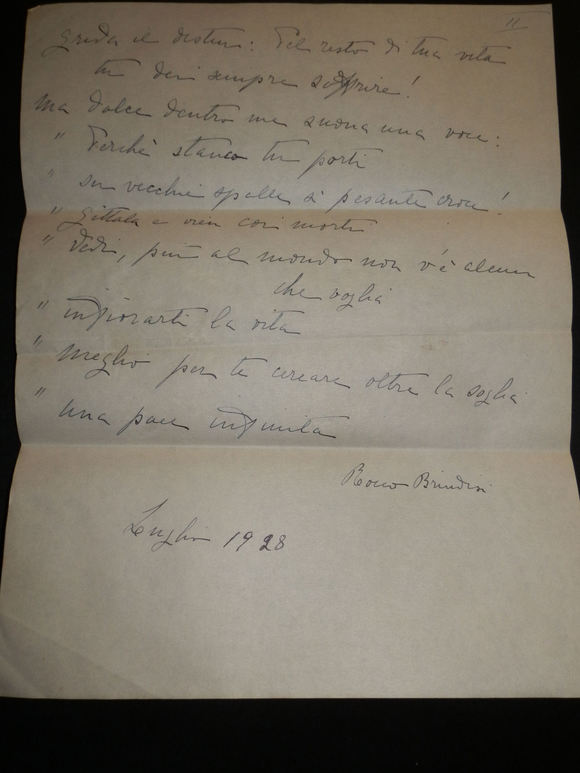 11
grida il destin: Pel resto di tua vita
tu dei sempre soffrire!
ma dolce dentro me suona una voce:
" Perchè stanco tu porti
" su vecchie spalle sì pesante croce!
" gittala e vien coi morti
" Vedi, più al mondo non v'è alcun
che voglia
" infiorarti la vita
" meglio per te cercare oltre la soglia
" una pace infinita
Rocco Brindisi
Luglio 1928